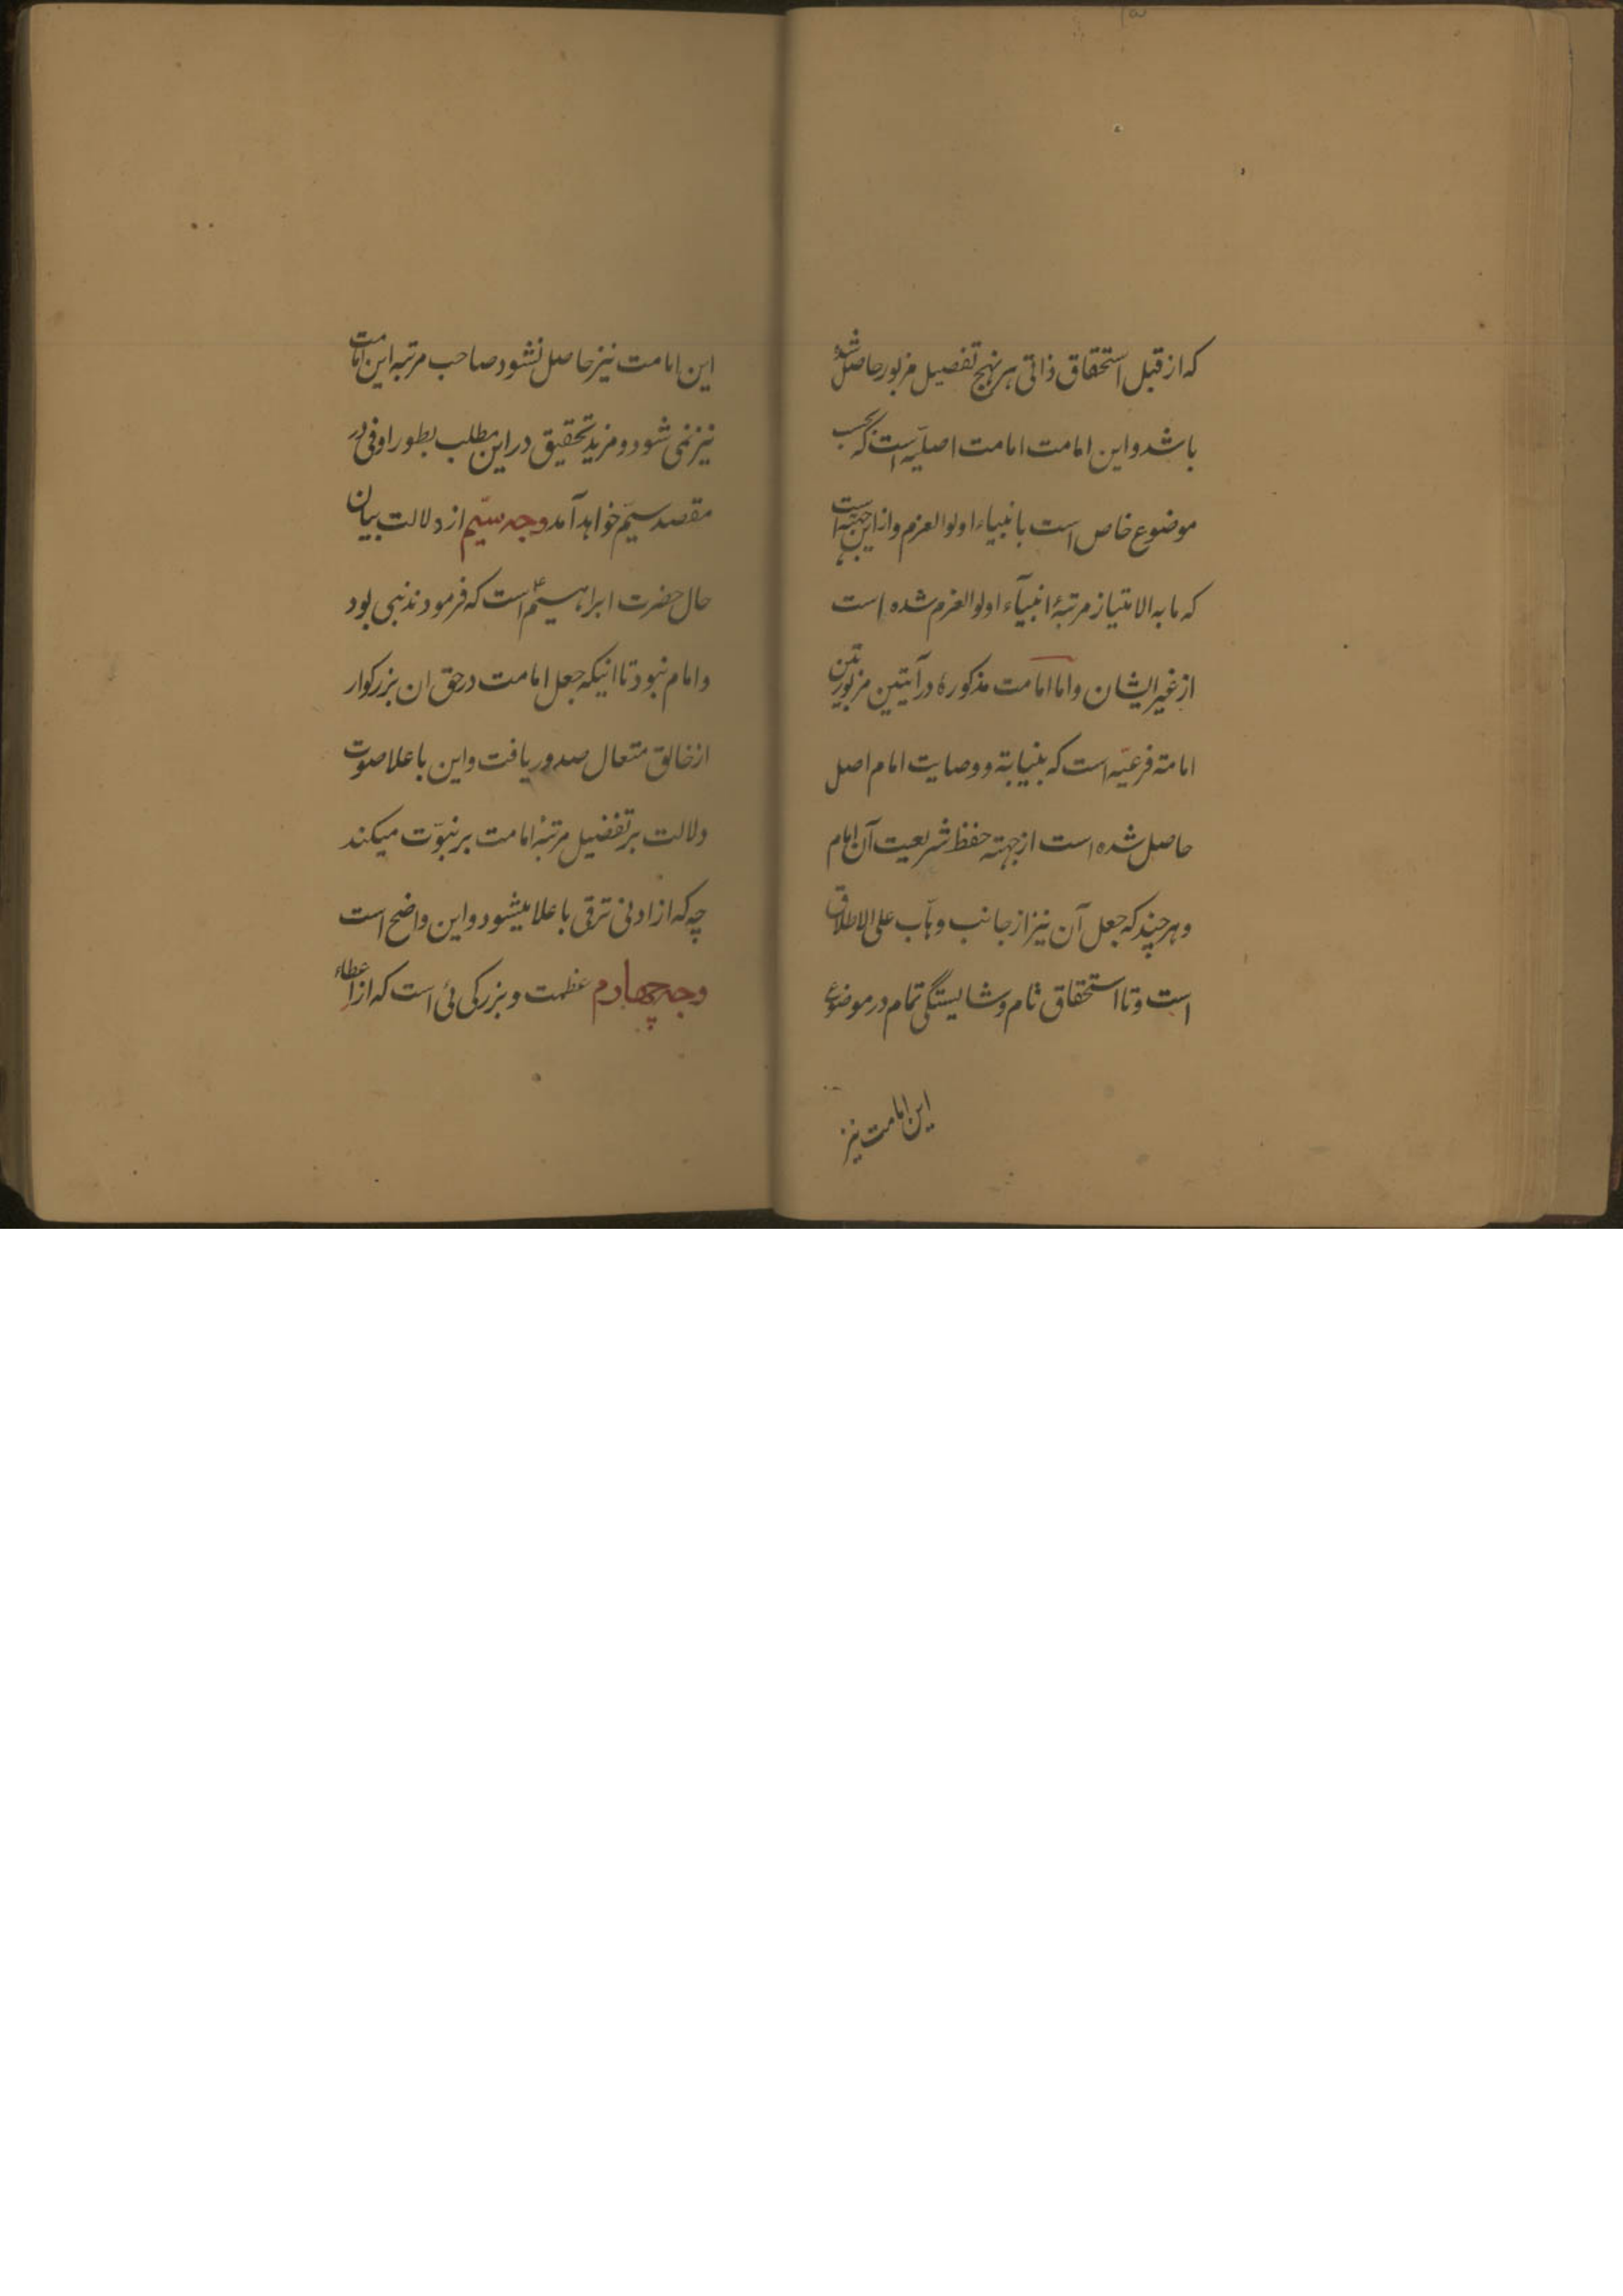 که از قبل استحقاق ذاتی بر نهج تفصیل مزبور حاصل شده
باشد و این امامت امامت اصلیّه است که بحسب
موضوع خاص است بانبیاء اولوالعزم و از این جهت است
که مابه الامتیاز مرتبهٔ انبیآء اولوالعزم شده است
از غیر ایشان و اما امامت مذکوره در آیتین مزبورتین
امامته فرعیّه است که بنیابة و وصایت امام اصل
حاصل شده است از جهته حفظ شریعت آن امام
و هر چند که جعل آن نیز از جانب وهّاب علی الاطلاق
است و تا استحقاق تام و شایستگی تمام در موضوع
این امامت نیز
این امامت نیز حاصل نشود صاحب مرتبه این امامت
نیز نمی شود و مزید تحقیق در این مطلب بطور اوفی در
مقصد سیّم خواهد آمد وجه سیّم از دلالت بیان
حال حضرت ابراهیم ع است که فرمودند نبی بود
و امام نبود تا اینکه جعل امامت در حق ان بزرکوار
از خالق متعال صدور یافت و این باعلا صوت
دلالت بر تفضیل مرتبهٔ امامت بر نبوّت میکند
چه که از ادنی ترقی باعلا میشود و این واضح است
وجه چهارم عظمت و بزرکی ئی است که از اعطاء